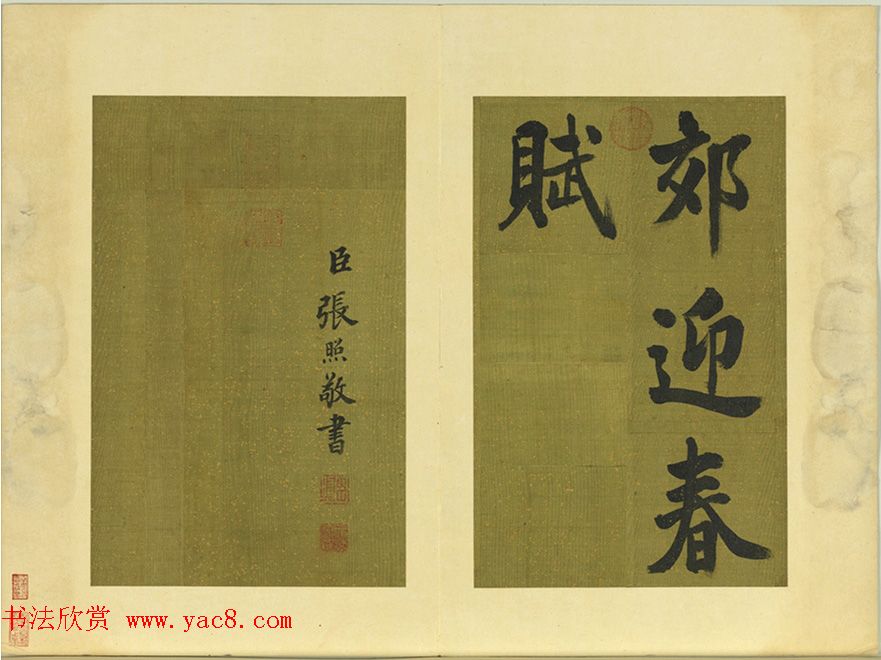 郊迎春
賦
臣張照敬書
书法欣赏 www.yac8.com